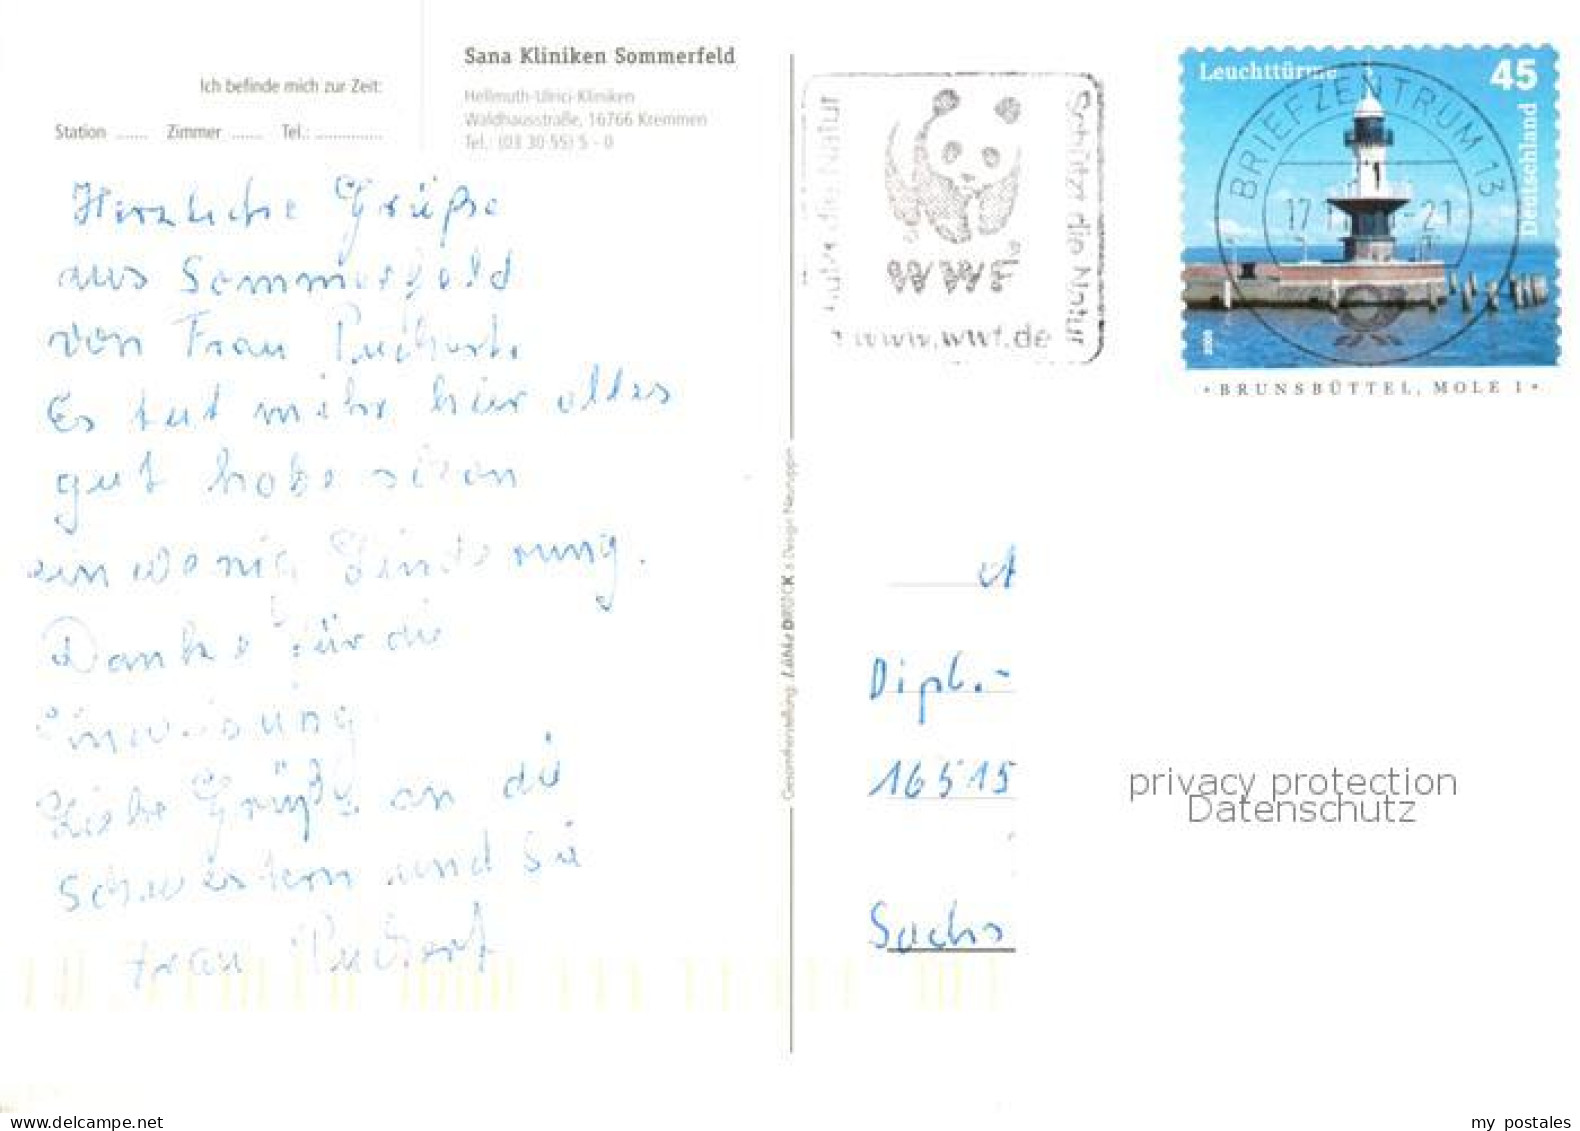 Sana Kliniken Sommerfeld
Hellmuth-Ulrici-Kliniken
Waldhausstraße, 16766 Kremmen
Tel.: (03 30 55) 5 - 0
Ich befinde mich zur Zeit:
Station ...... Zimmer ...... Tel.: .............
Herzliche Grüße
aus Sommerfeld
von Frau
Es tut mihr hier alles
gut habe schon
ein wenig Linderung.
Danke für die
Einweisung
Liebe Grüße an die
Schwestern und Sie
Frau
Gesamtherstellung: DRUCK & Design Neuruppin
Schützt die Natur
WWF
www.wwf.de
Leuchttürme 45
Deutschland
BRIEFZENTRUM 13
17 -21
BRUNSBÜTTEL, MOLE 1
Dipl.-
16515
Sachs
privacy protection
Datenschutz
my postales